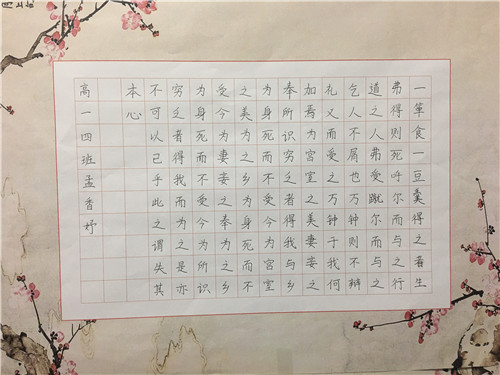 一箪食一豆羹得之者生
弗得则死呼尔而与之行
道之人弗受蹴尔而与之
乞人不屑也万钟则不辨
礼义而受之万钟于我何
加焉为宫室之美妻妾之
奉所识穷乏者得我与乡
为身死而不受今为宫室
之美为之乡为身死而不
受今为妻妾之奉为之乡
为身死而不受今为所识
穷乏者得我而为之是亦
不可以已乎此之谓失其
本心
高一四班孟香妤